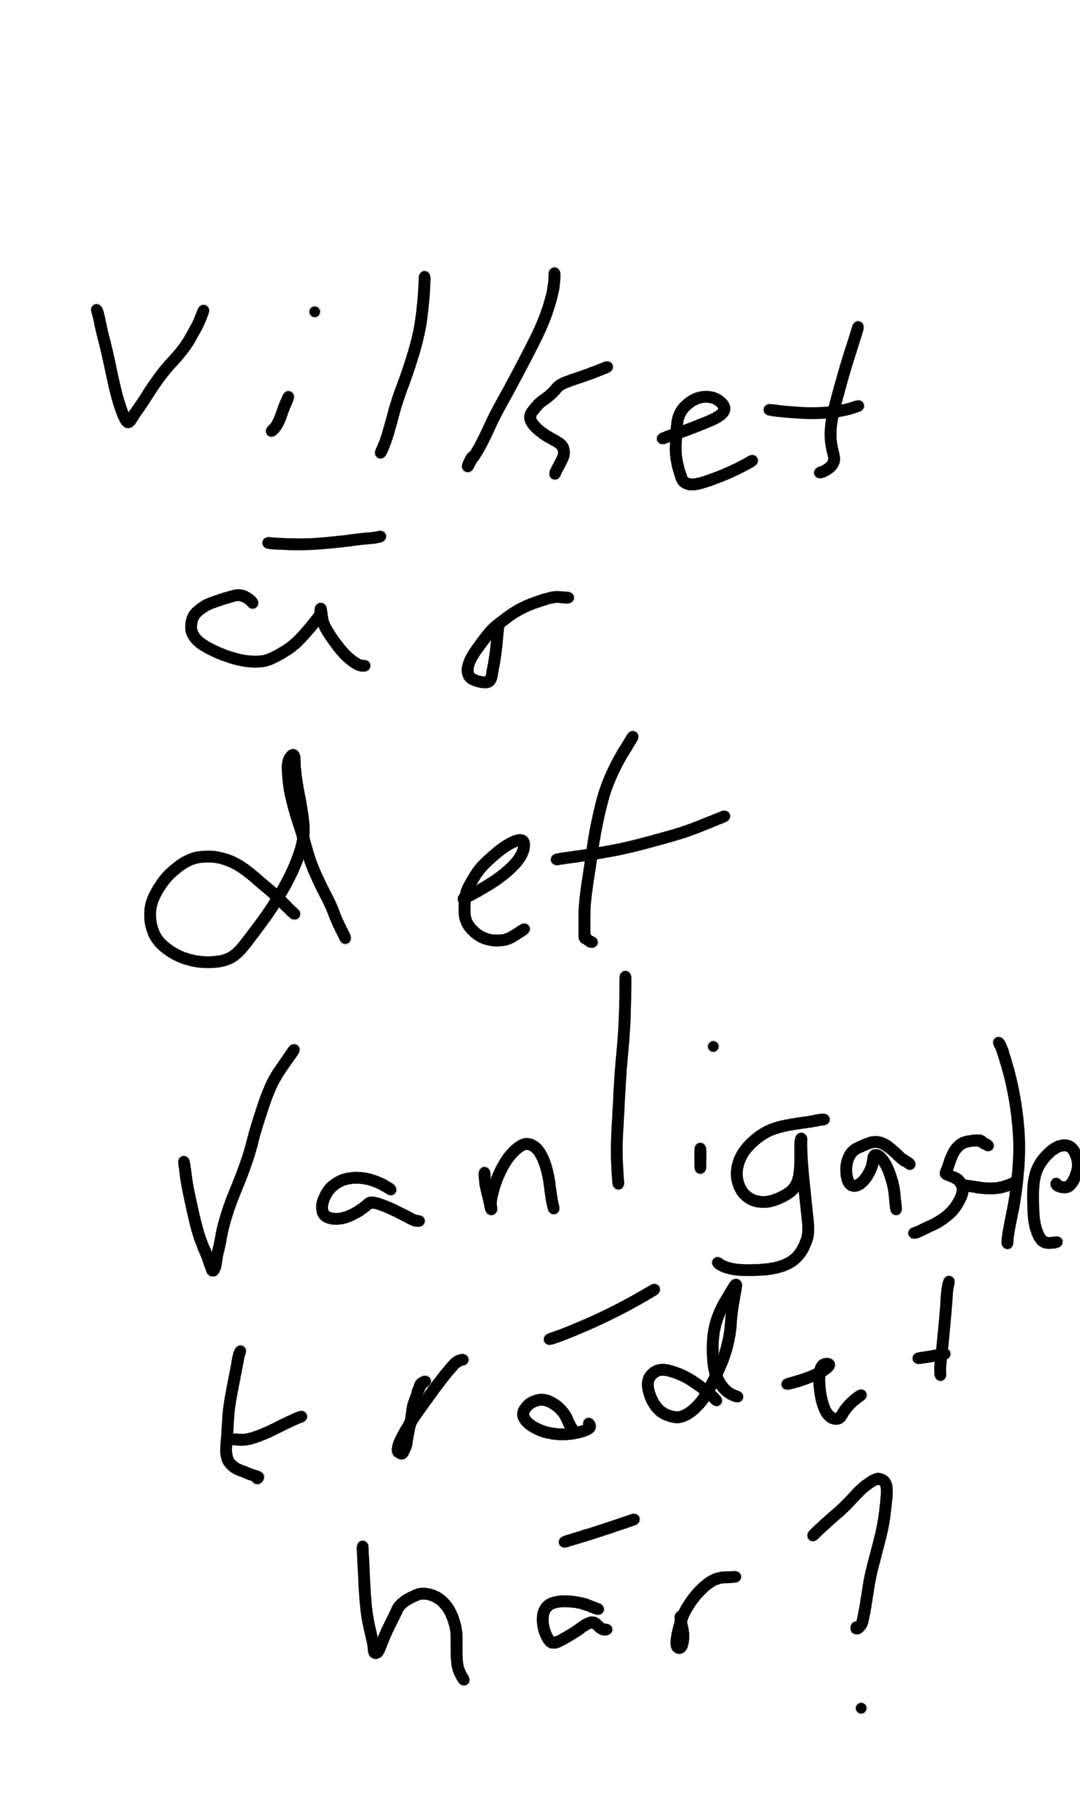 vilket
är
det
vanligaste
trädet
här?